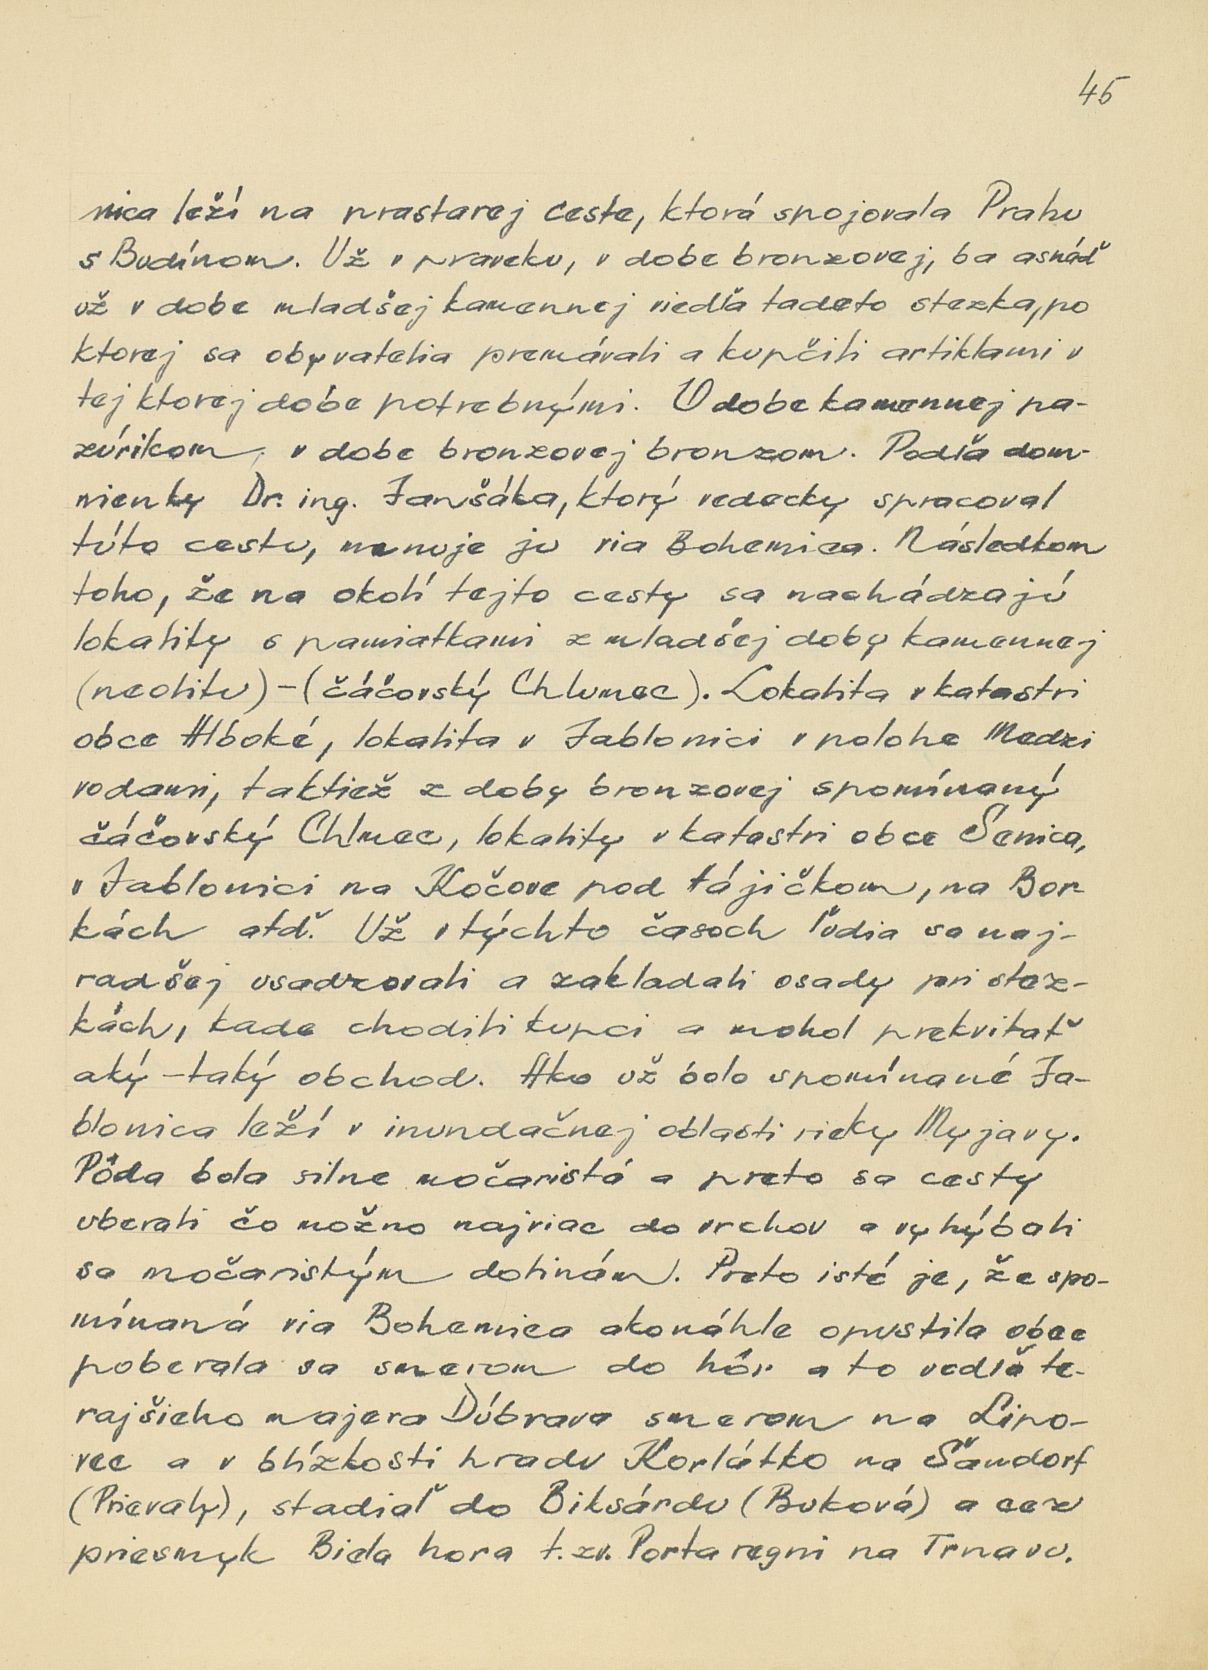 45
nica leží na prastarej ceste, ktorá spojovala Prahu
s Budínom. Už v praveku, v dobe bronzovej, ba asnáď
už v dobe mladšej kamennej viedľa tadeto stezka, po
ktorej sa obyvatelia premávali a kupčili artiklami v
tej ktorej dobe potrebnými. V dobe kamennej pa-
zúrikom, v dobe bronzovej bronzom. Podľa dom-
nienky Dr. ing. Janšáka, ktorý vedecky spracoval
túto cestu, menuje ju via Bohemica. Následkom
toho, že na okolí tejto cesty sa nachádzajú
lokality s pamiatkami z mladšej doby kamennej
(neolitu) - (čáčovský Chlumec). Lokalita v katastri
obce Hlboké, lokalita v Jablonici v polohe Medzi
vodami, taktiež z doby bronzovej spomínaný
čáčovský Chlmec, lokality v katastri obce Senica,
v Jablonici na Kočove pod tájičkom, na Bor-
kách atď. Už v týchto časoch ľudia sa naj-
radšej usadzovali a zakladali osady pri stez-
kách, kade chodili kupci a mohol prekvitať
aký-taký obchod. Ako už bolo spomínané Ja-
blonica leží v inundačnej oblasti rieky Myjavy.
Pôda bola silne močaristá a preto sa cesty
uberali čo možno najviac do vrchov a vyhýbali
sa močaristým dolinám. Preto isté je, že spo-
mínaná via Bohemica akonáhle opustila obec
poberala sa smerom do hôr a to vedľa te-
rajšieho majera Dúbrava smerom na Lipo-
vec a v blízkosti hradu Korlátko na Šándorf
(Prievaly), stadiaľ do Biksárdu (Buková) a cez
priesmyk Biela hora t.zv. Porta regni na Trnavu.